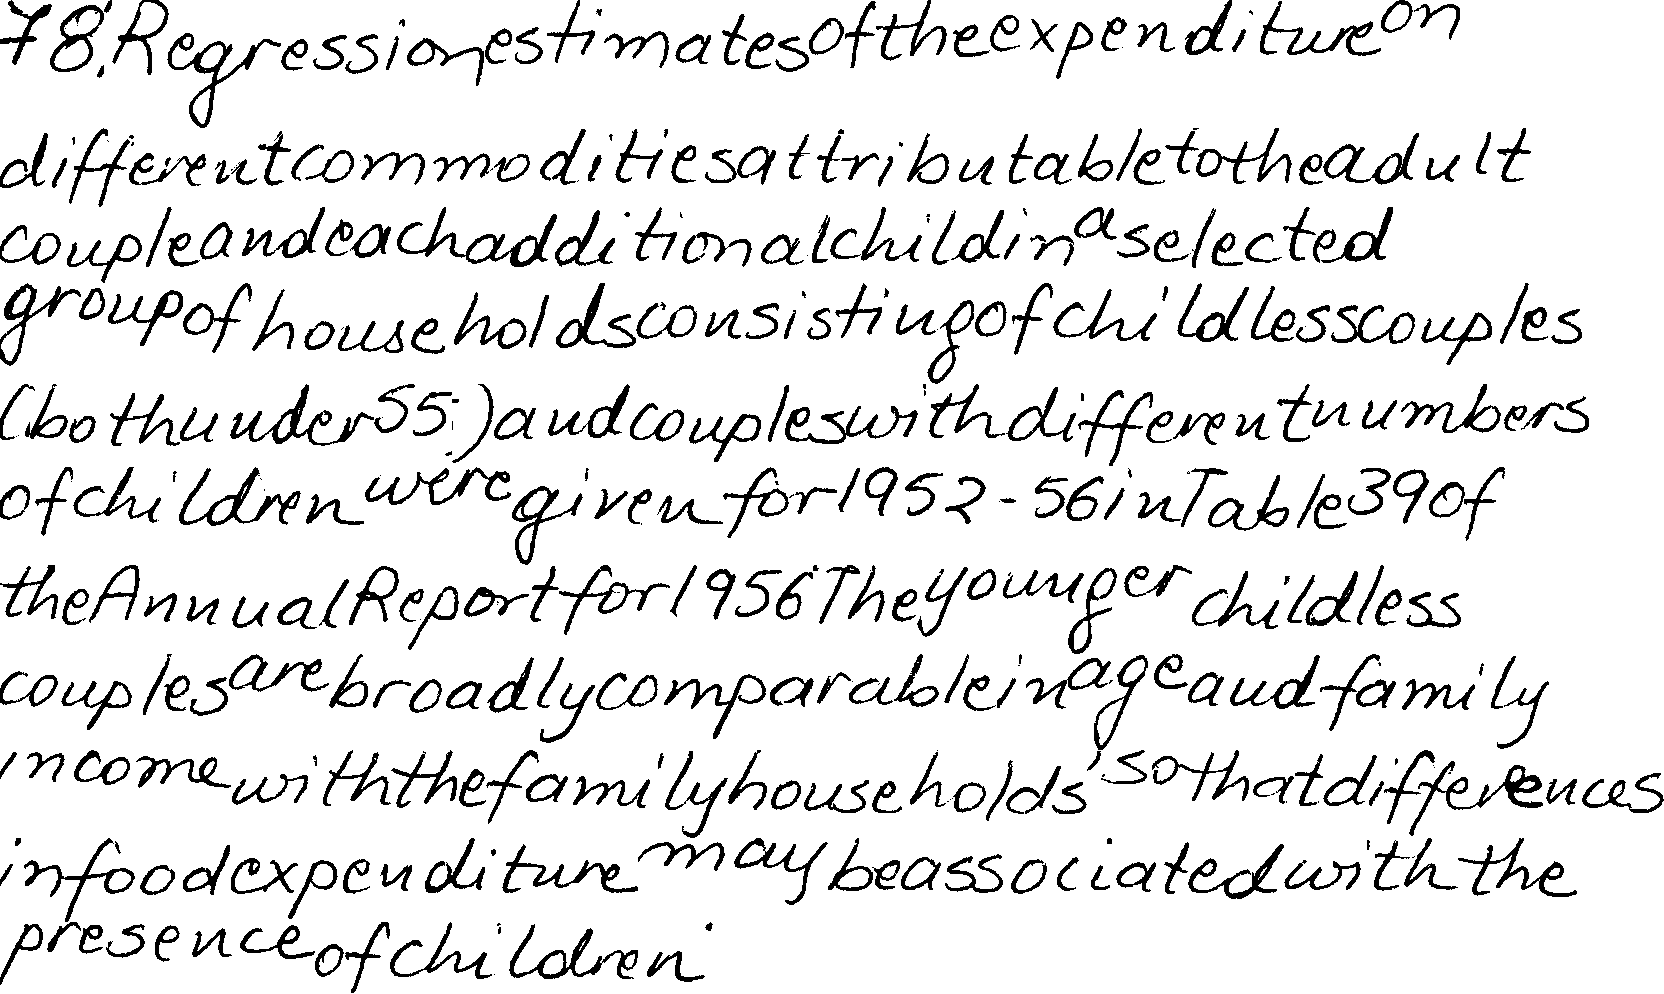 78. Regression estimates of the expenditure on
different commodities attributable to the adult
couple and each additional child in a selected
group of households consisting of childless couples
(both under 55.) and couples with different numbers
of children were given for 1952-56 in Table 39 of
the Annual Report for 1956. The younger childless
couples are broadly comparable in age and family
income with the family households, so that differences
in food expenditure may be associated with the
presence of children.